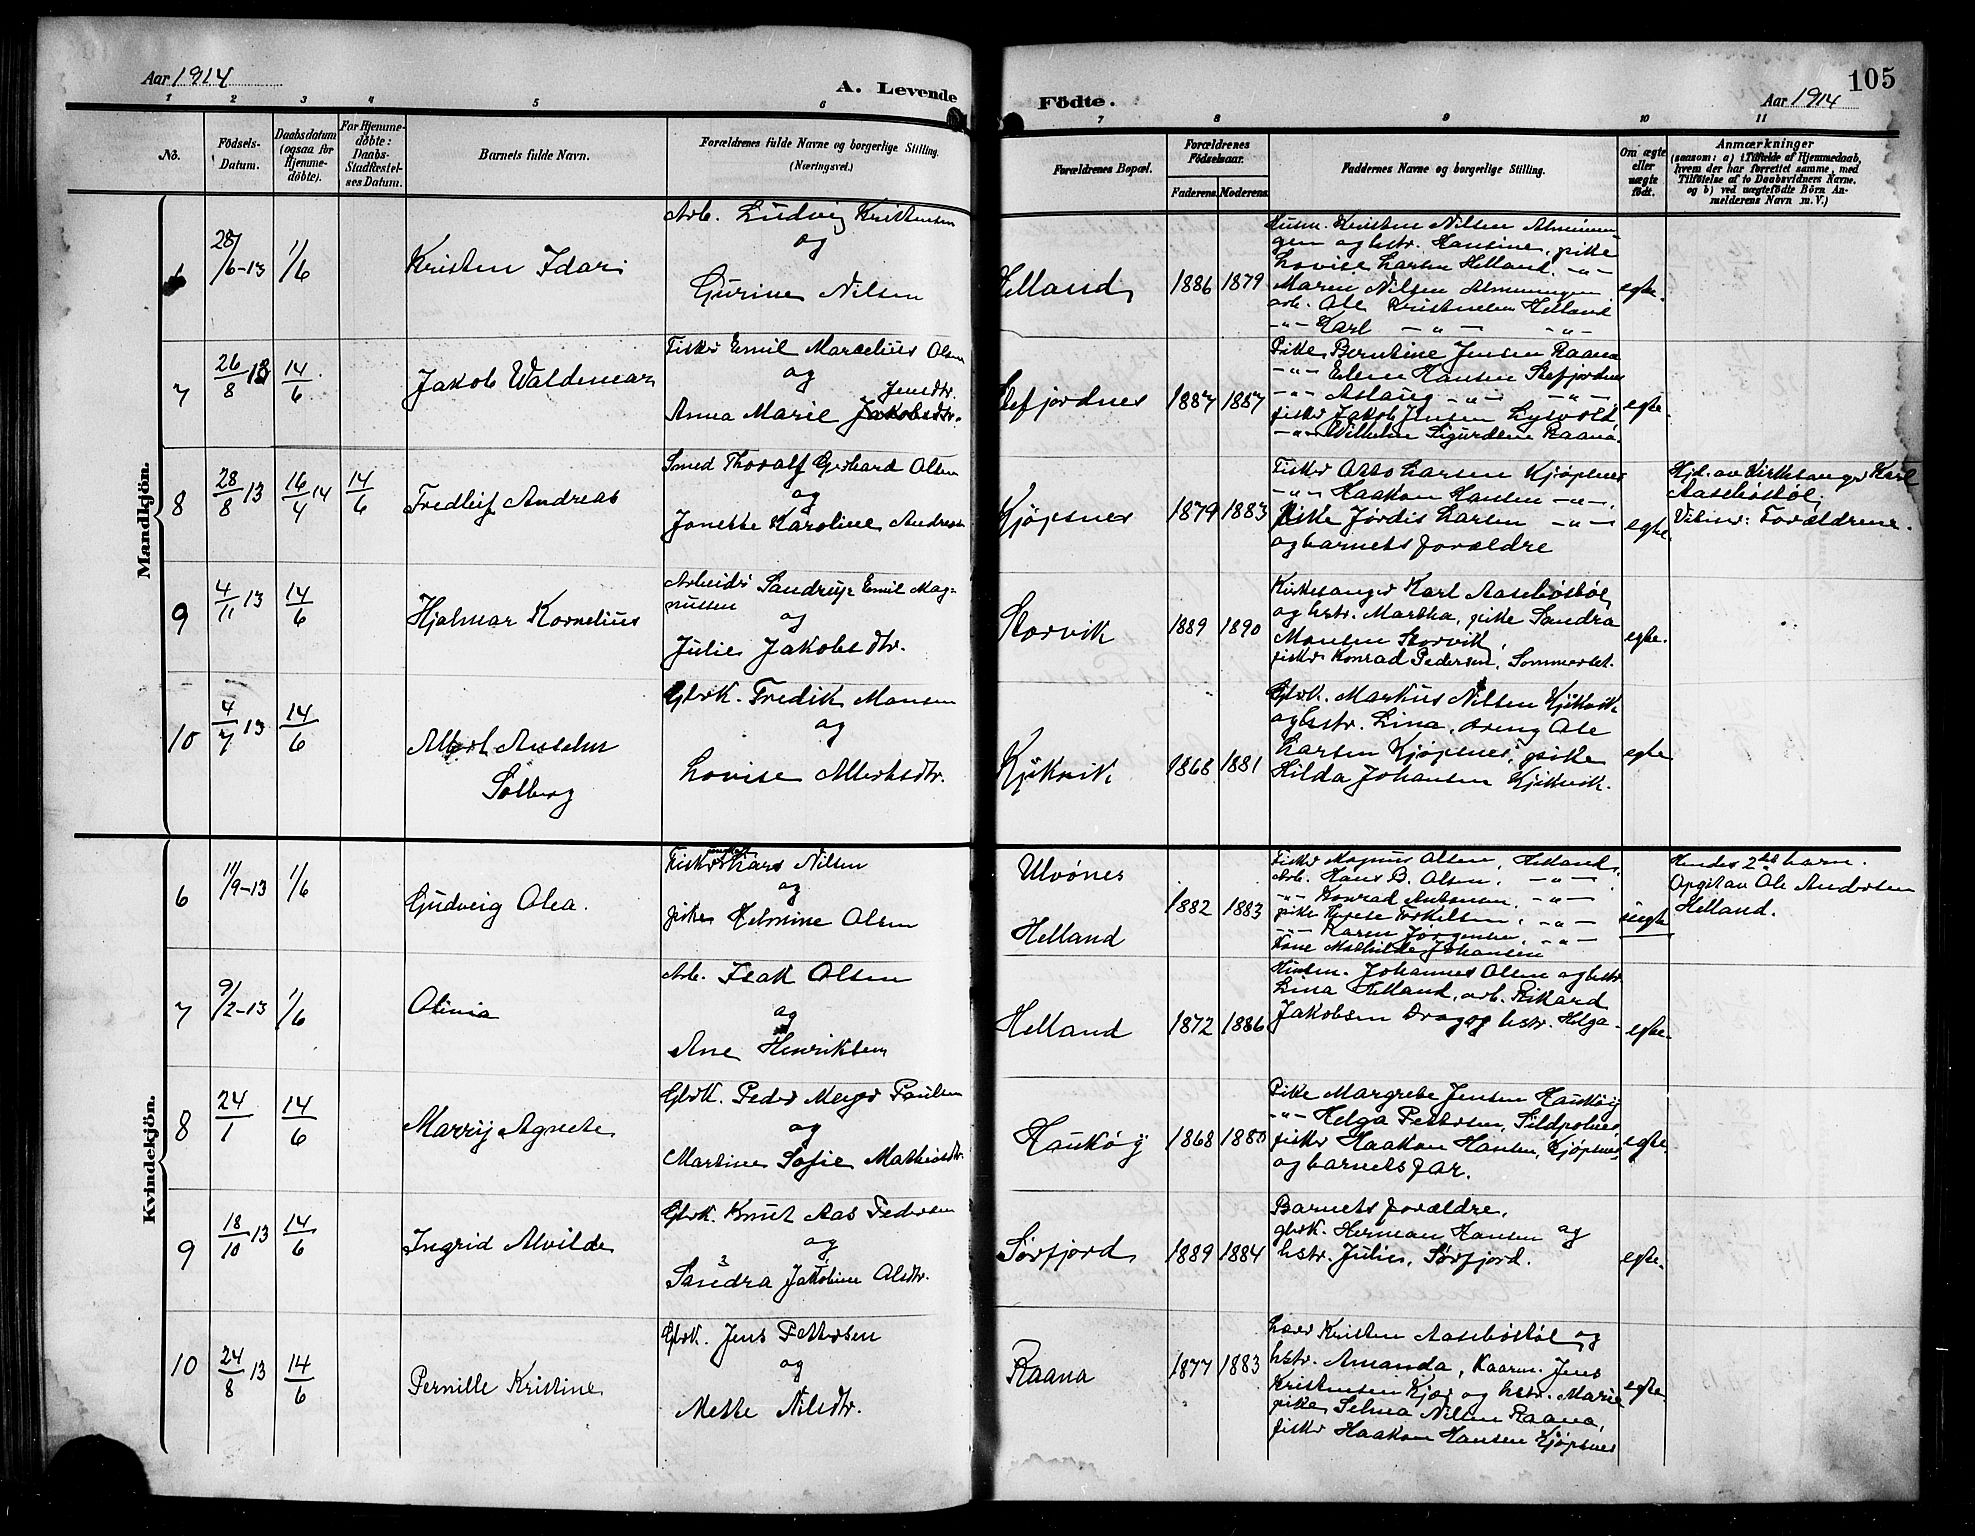 Aar 1914
A. Levende
Födte.
Aar 1914
105
1 2 3 4 5 6 7 8 9 10 11
No.
Födsels-
Datum.
Daabsdatum
(ogsaa for
Hjemme-
döbte).
For Hjemme-
döbte:
Daabs-
Stadfæstel-
ses Datum.
Barnets fulde Navn.
Forældrenes fulde Navne og borgerlige Stilling.
(Næringsvei.)
Forældrenes Bopæl.
Forældrenes
Födselsaar.
Faderens. Moderens.
Faddernes Navne og borgerlige Stilling.
Om ægte
eller
uægte
födt.
Anmærkninger
(saasom: a) i Tilfælde af Hjemmedaab,
hvem der har forrettet samme, med
Tilföielse af to Daabsvidners Navne,
og b) ved uægtefödte Börn An-
melderens Navn m. V.)
Mandkjön.
28/6-13 1/6
Kristen Idar
Arb. Ludvig Kristensen
og
Gurine Nilsen
Helland 1886 1879
Husm. Kristen Nilsen Alminnin-
gen og hstr. Hansine, pike
Lovise Larsen Helland. -"-
Maren Nilsen Alminningen
arb. Ole Kristensen Helland
-"- Karl -"- -"-
egte.
7 26/8 13 14/6
Jakob Waldemar
Fisker Emil Marcelius Olsen
og
Jensdtr.
Anna Marie Jakobsdtr.
Stefjordnes 1887 1887
Pike Berntine Jensen Raana
-"- Edene Hansen Stefjordnes
-"- Aslaug -"- -"-
fisker Jakob Jensen Lysvold,
-"- Wilhelm Sigurdsen Raana.
egte.
8 28/8 13 16/4 14 14/6
Fredleif Andreas
Smed Thoralf Gerhard Olsen
og
Jonette Karoline Andreasen
Kjøpsnes 1879 1883
Fisker Otto Larsen Kjøpsnes
-"- Haakon Hansen -"-
Pike Jørdis Larsen -"-
og barnets forældre
egte.
Hjd. av Kirkesanger Karl
Aasebøstøl.
Vitner: Forældrene.
9 4/11 13 14/6
Hjalmar Kornelius
Arbeider Sandrup Emil Mag-
nussen
og
Julie Jakobsdtr.
Storvik 1889 1890
Kirkesanger Karl Aasebøstøl
og hstr. Martha, pike Sandra
Monsen Storvik,
fisker Konrad Pedersen, Sommerset.
egte.
10 4/7 13 14/6
Albert Anselm
Solberg
Gbrk. Fredik Monsen
og
Lovise Albertsdtr.
Kjikvik 1868 1881
Gbrk. Markus Nilsen Kjikvik
og hstr. Lina, dreng Ole
Larsen Kjøpsnes, pike
Hilda Johansen Kjikvik.
egte
Kvindekjön.
6 11/9-13 1/6
Gudveig Olea.
Fisker Lars Nilsen
og
pike Helmine Olsen
Ulvønes
Helland
1882 1883
Fisker Magnus Olsen, Helland,
Arb. Hans B. Olsen, -"-
-"- Konrad Antonsen, -"-
pike Therese Torkelsen, -"-
-"- Karen Jørgensen, -"-
Kone Mathilde Johansen -"-
uegte
Hendes 2det barn.
Opgit av Ole Andersen
Helland.
7 9/2-13 1/6
Olivia
Arb. Isak Olsen
og
Ane Henriksen
Helland 1872 1886
Husm. Johannes Olsen og hstr
Lina Helland, arb. Rikard
Jakobsen Drag og hstr. Helga.
egte.
8 24/1 14/6
Marrij Agnete
Gbrk. Peder Meyer Paulsen
og
Martine Sofie Mathiasdtr.
Haukøy 1868 1880
Pike Margrete Jensen Haukøy
-"- Helga Pettersen, Sildpolnes
fisker Haakon Hansen, Kjøpsnes
og barnets far.
egte.
9 18/10 13 14/6
Ingrid Alvilde
Gbrk. Knut Aas Pedersen
og
Sandra Jakobine Olsdtr.
Sørfjord 1889 1884
Barnets forældre,
gbrk. Herman Hansen og
hstr. Julie, Sørfjord.
egte.
10 24/8 13 14/6
Pernille Kristine
Gbrk. Jens Pettersen
og
Mette Nilsdtr.
Raana 1877 1883
Lærer Kristen Aasebøstøl og
hstr. Amanda, Kaarm. Jens
Kristensen Kjær og hstr. Marie
pike Selma Nilsen Raana,
fisker Haakon Hansen Kjøpsnes
egte